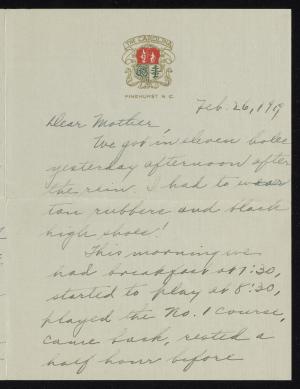 THE CAROLINA
PINEHURST N.C.
Feb. 26, 1919
Dear Mother,
We got in eleven holes
yesterday afternoon after
the rain. I had to wear
tan rubbers and black
high shoes!
This morning we
had breakfast at 7:30,
started to play at 8:30,
played the No. 1 course,
came back, rested a
half hour before